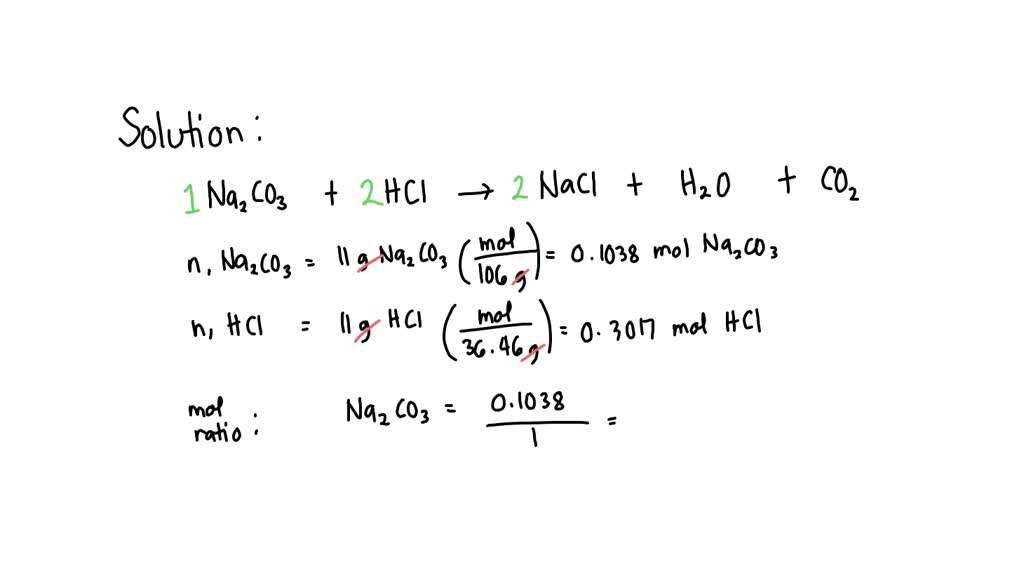 Solution:
1 Na₂CO₃ + 2 HCl → 2 NaCl + H₂O + CO₂
n, Na₂CO₃ = 11 g Na₂CO₃ (mol / 106 g) = 0.1038 mol Na₂CO₃
n, HCl = 11 g HCl (mol / 36.46 g) = 0.3017 mol HCl
mol ratio : Na₂CO₃ = 0.1038 / 1 =